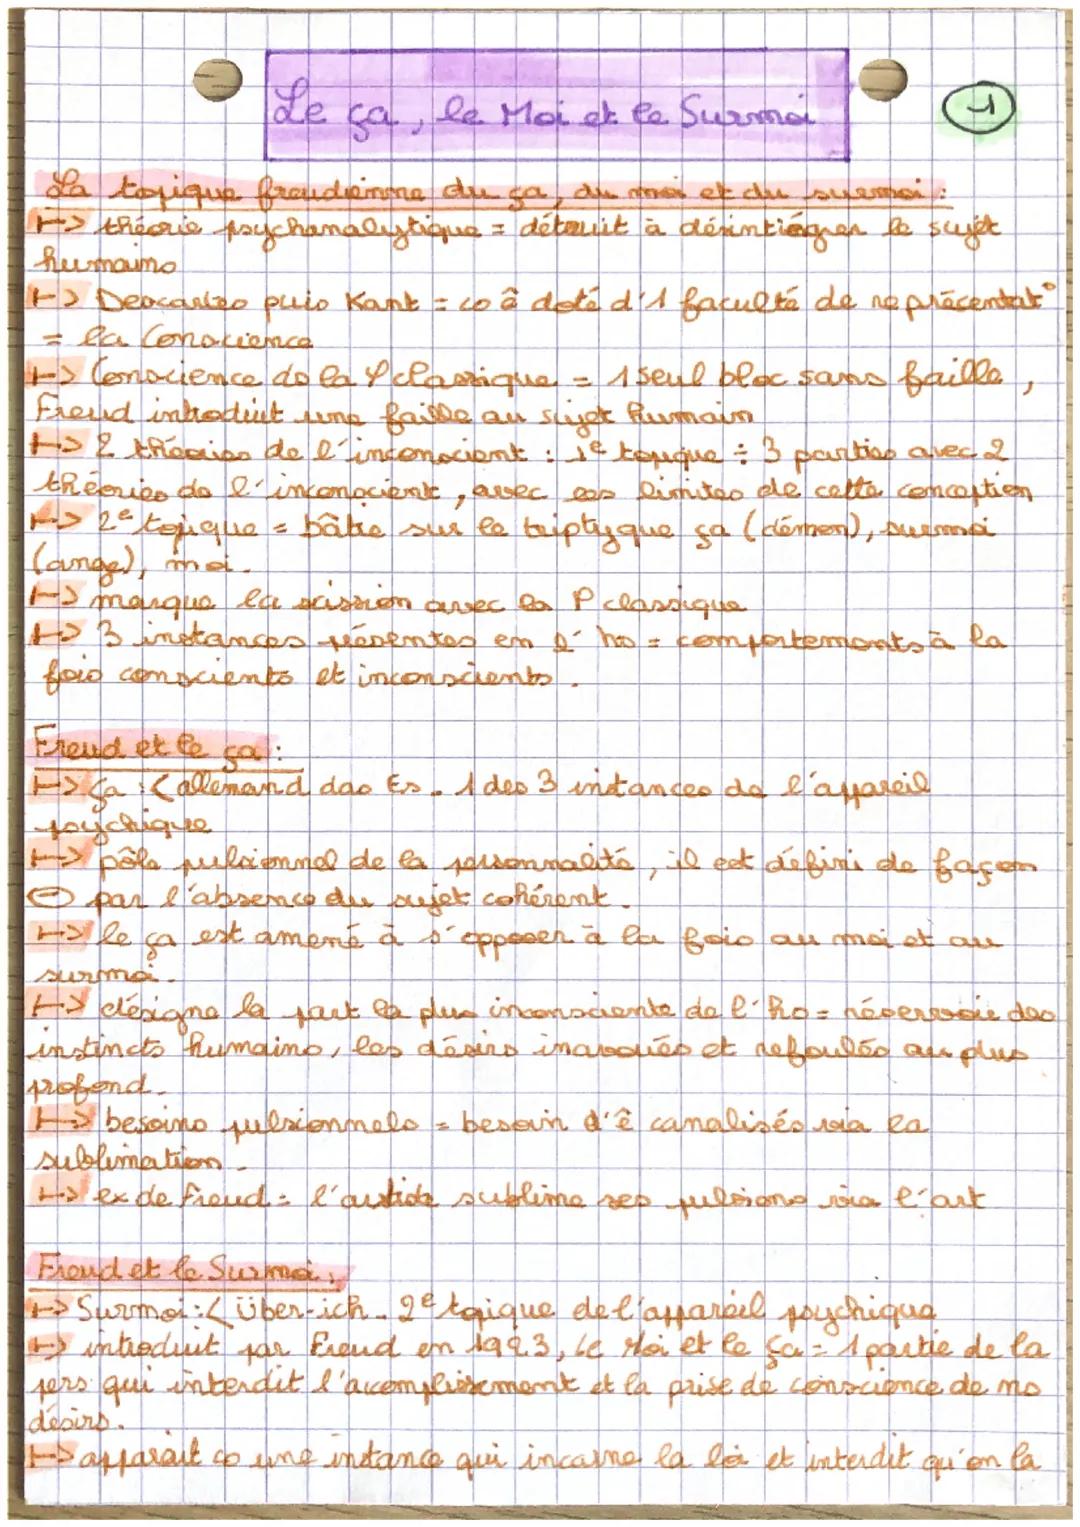 Le ça, le Moi et le Surmoi
1
La topique freudienne du ça, du moi et du surmoi :
↦ théorie psychanalytique = détruit à désintiégrer le sujet
humains
↦ Descartes puis Kant = co ê doté d'1 faculté de représentat°
= la Conscience
↦ Conscience de la φ classique = 1 seul bloc sans faille,
Freud introduit une faille au sujet humain
↦ 2 théories de l'inconscient : 1e topique ÷ 3 parties avec 2
théories de l'inconscient, avec les limites de cette conception
↦ 2e topique = bâtie sur le triptyque ça (démon), surmoi
(ange), moi.
↦ marque la scission avec la P classique
↦ 3 instances présentes en l'ho = comportements à la
fois conscients et inconscients.
Freud et le ça :
↦ ça : < allemand das Es. 1 des 3 instances de l'appareil
psychique
↦ pôle pulsionnel de la personnalité, il est défini de façon
⊖ par l'absence du sujet cohérent.
↦ le ça est amené à s'opposer à la fois au moi et au
surmoi.
↦ désigne la part la plus inconsciente de l'ho = réservoir des
instincts humains, les désirs inavoués et refoulés au plus
profond.
↦ besoins pulsionnels = besoin d'ê canalisés via la
sublimation.
↦ ex de Freud = l'artiste sublime ses pulsions via l'art
Freud et le Surmoi :
↦ Surmoi : < Über-ich. 2e topique de l'appareil psychique
↦ introduit par Freud en 1923, le Moi et le ça = 1 partie de la
pers qui interdit l'accomplissement et la prise de conscience de nos
désirs.
↦ apparaît co une instance qui incarne la loi et interdit qu'on la